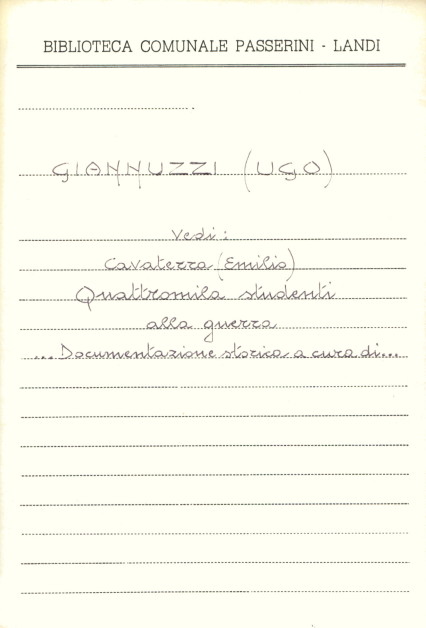 BIBLIOTECA COMUNALE PASSERINI - LANDI
GIANNUZZI (UGO)
Vedi:
Cavaterra (Emilio)
Quattromila studenti
alla guerra
... Documentazione storica a cura di...